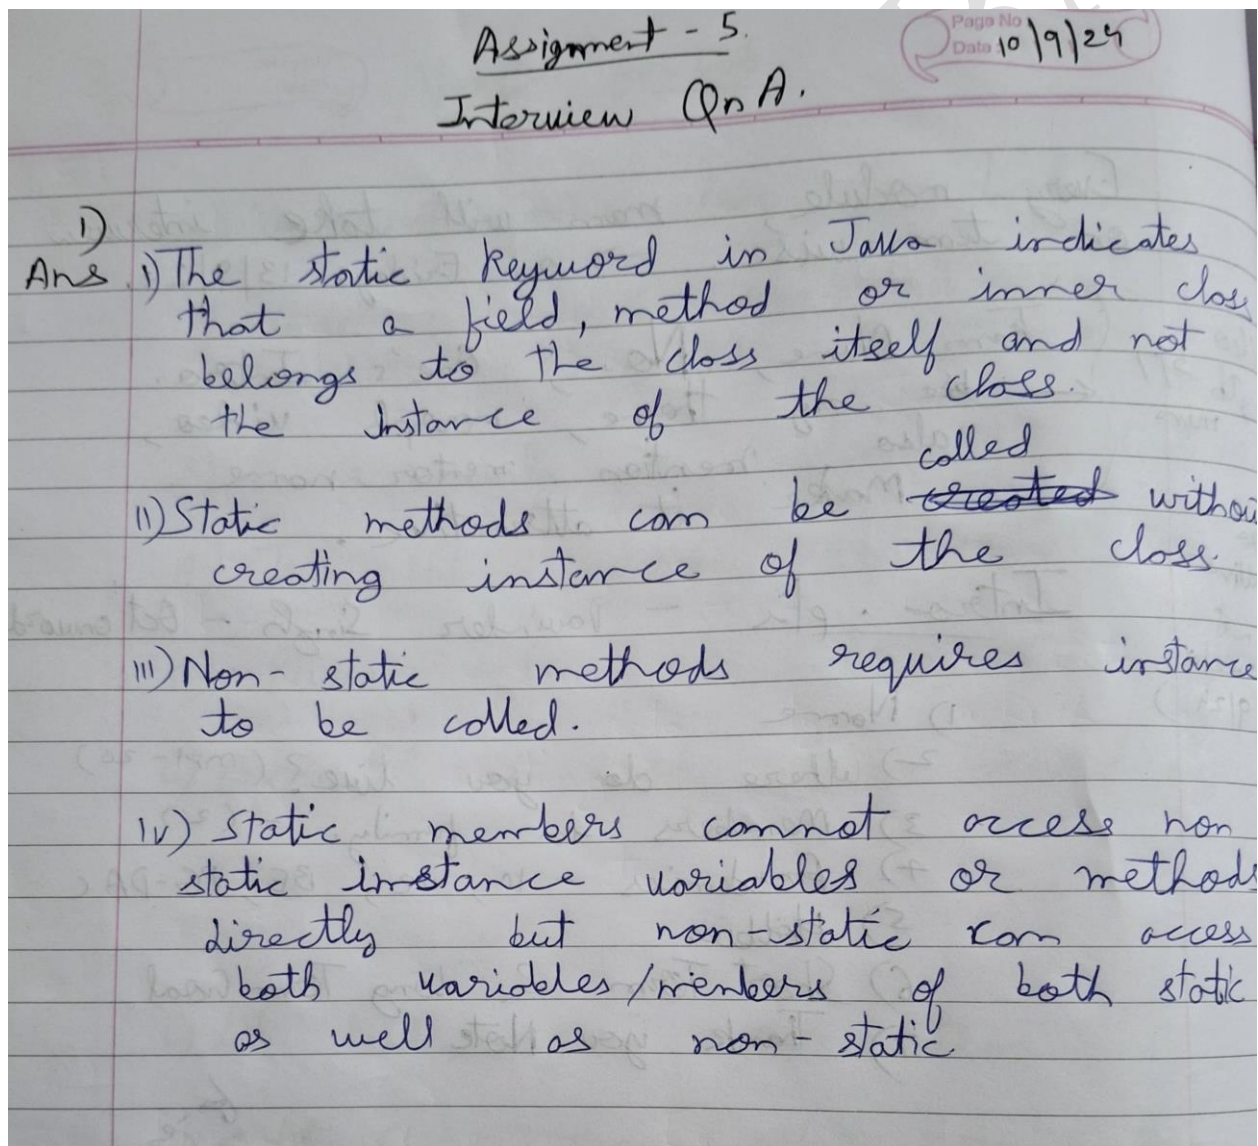 Assignment - 5.
Page No
Date: 10/9/24
Interview QnA.
1)
Ans i) The static keyword in Java indicates
that a field, method or inner clas
belongs to the class itself and not
the Instance of the class.
called
ii) Static methods can be created withou
creating instance of the class.
iii) Non-static methods requires instance
to be called.
iv) static members cannot access non
static instance variables or methods
directly but non-static can access
both variables/members of both static
as well as non-static